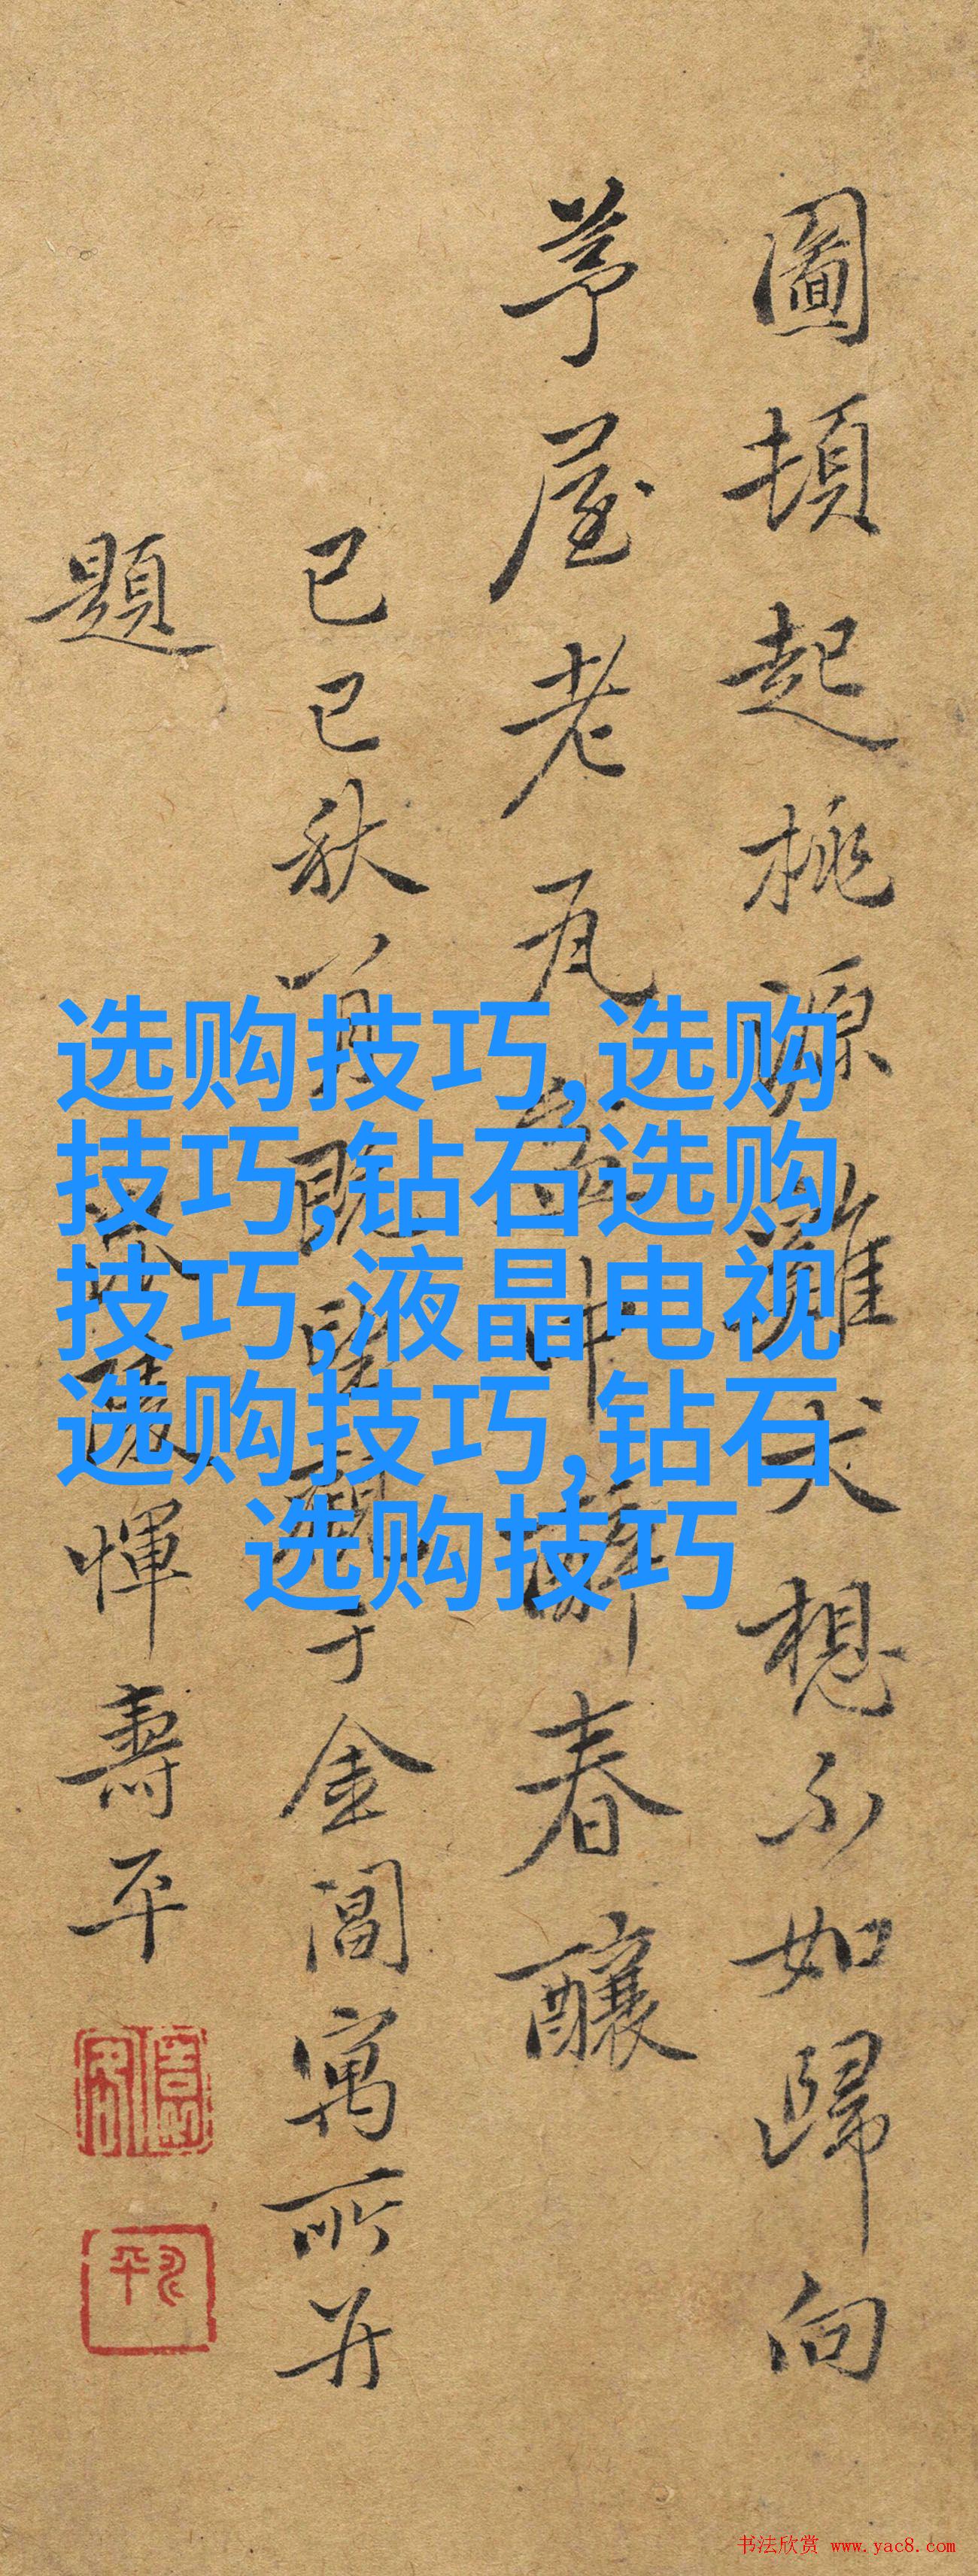 圖頓起桃源雞犬想不如歸向
茅屋老瓦盆中醉春釀
己巳秋八月既望觀于金閶寓所并
題
陵惲壽平
选购技巧,选购
技巧,钻石选购
技巧,液晶电视
选购技巧,钻石
选购技巧
书法欣赏 www.yac8.com